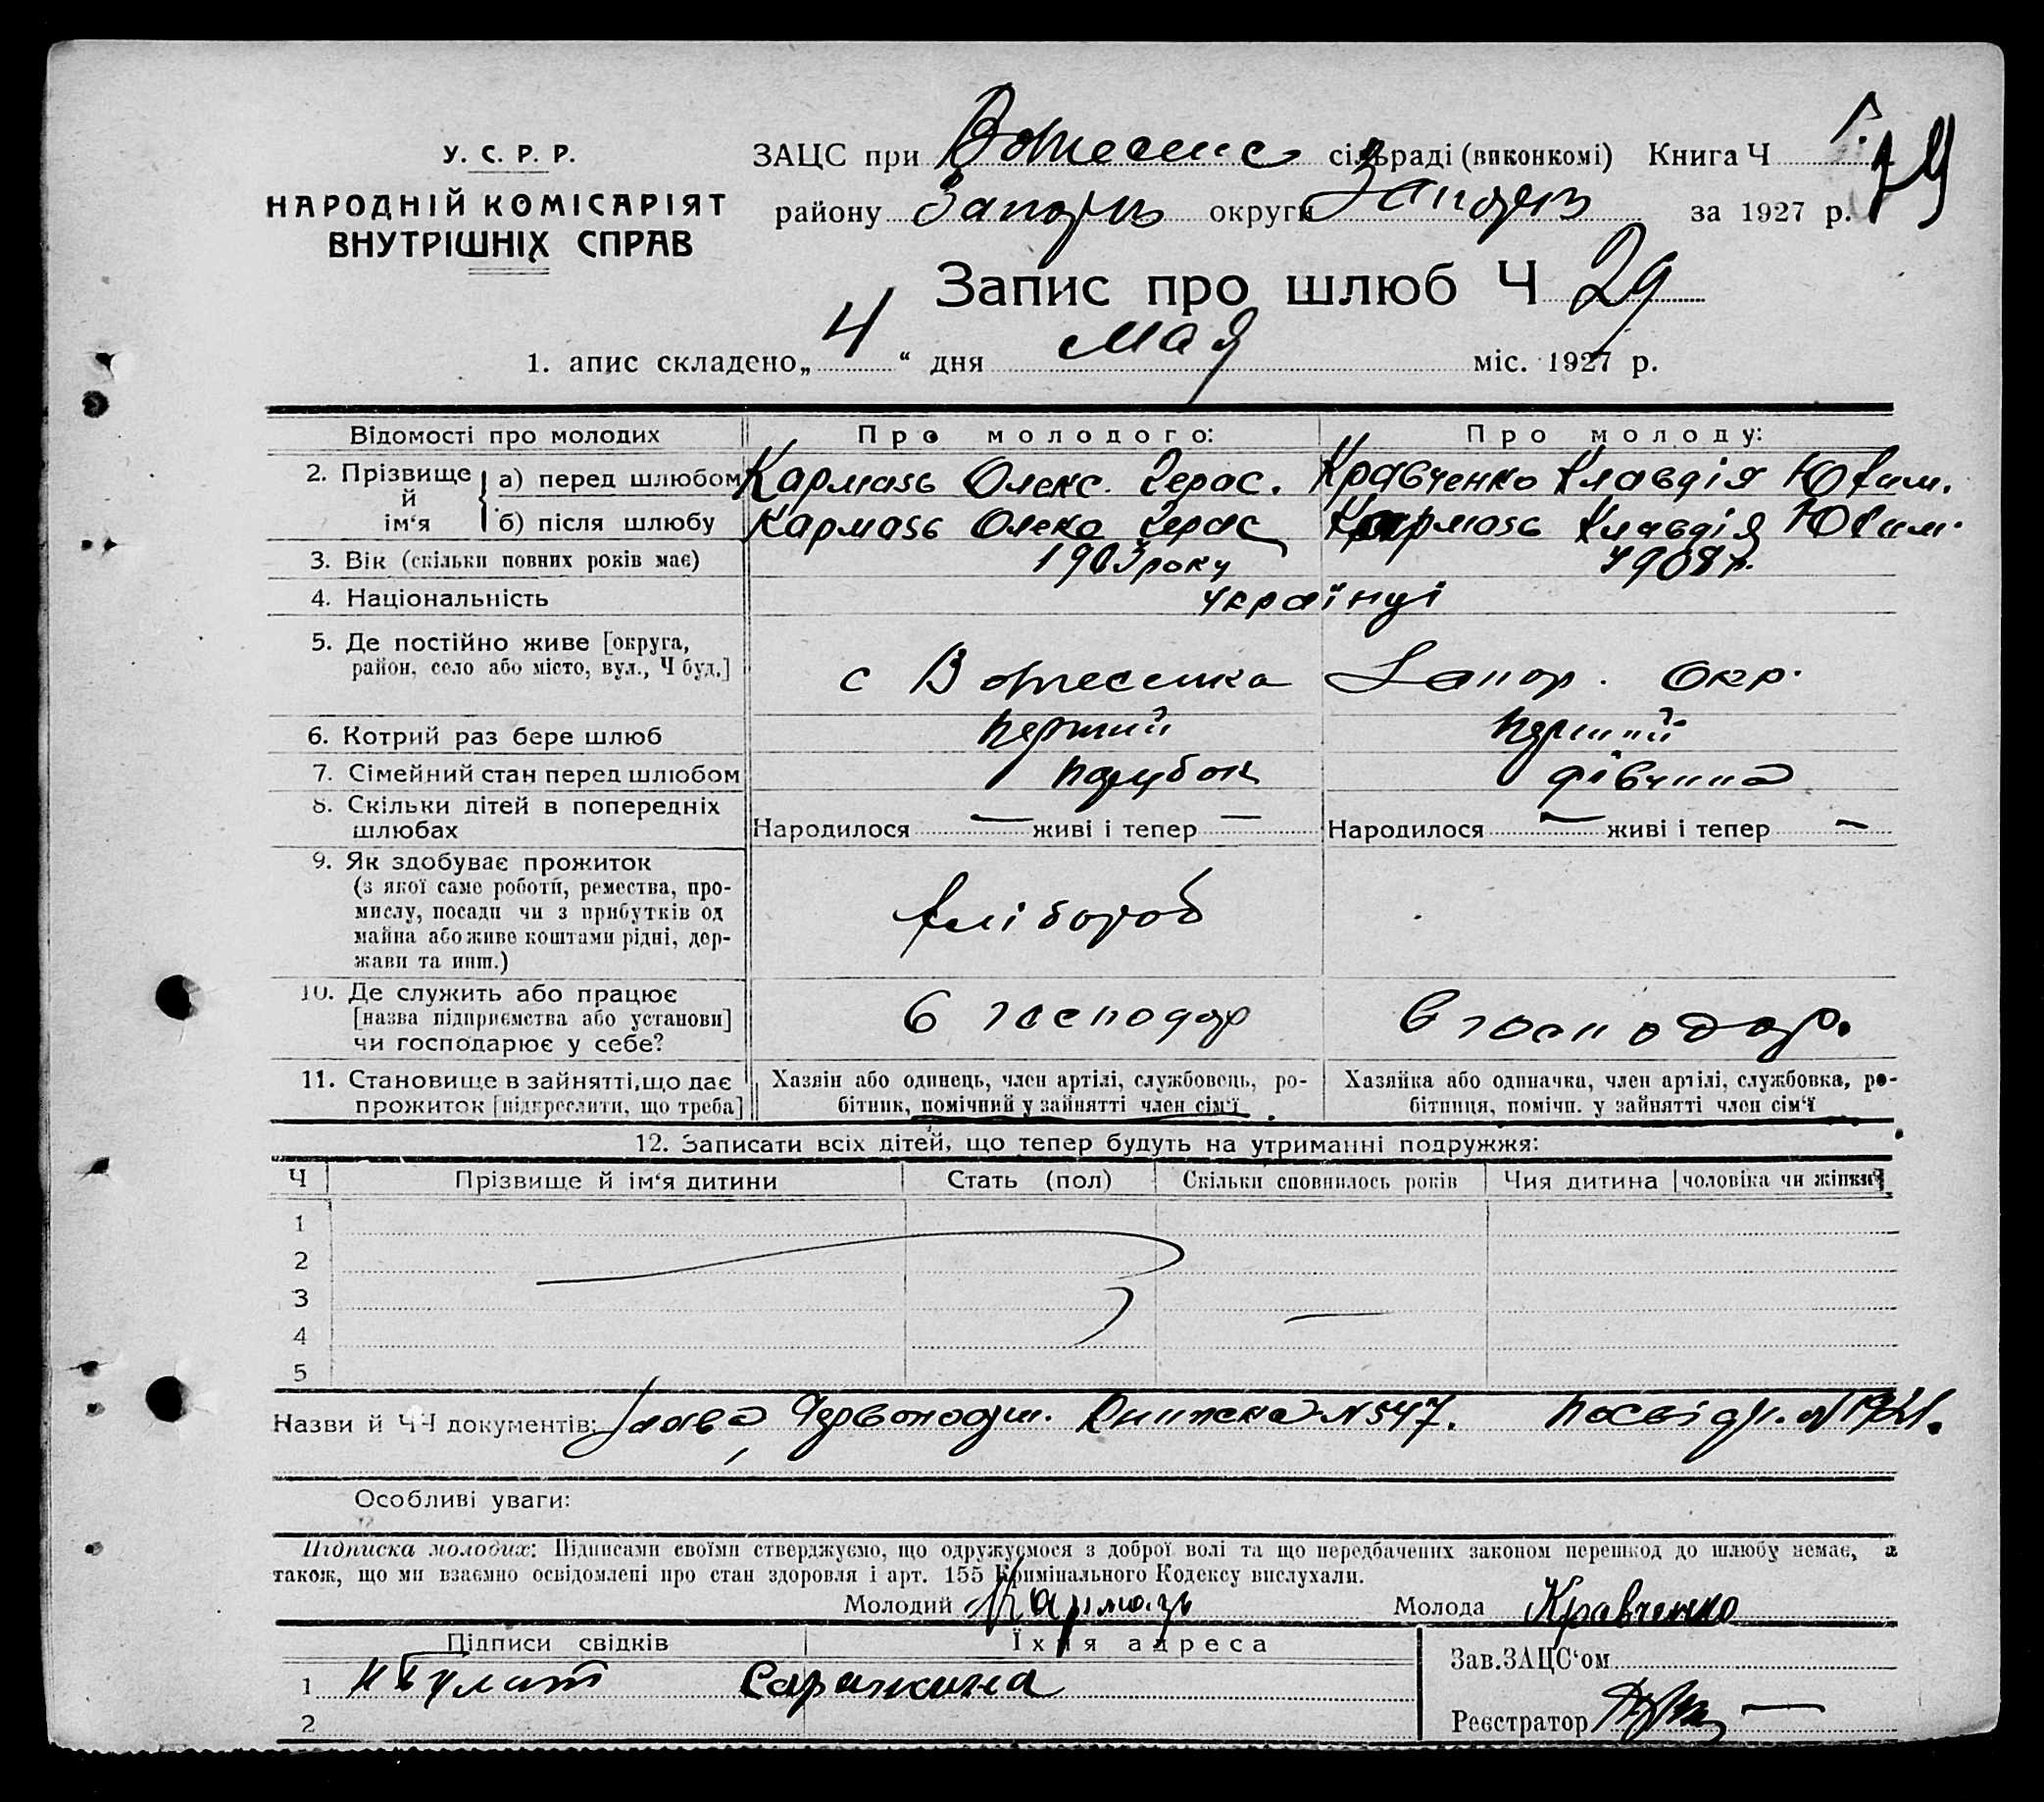 У. С. Р. Р.
НАРОДНІЙ КОМІСАРІЯТ
ВНУТРІШНІХ СПРАВ
ЗАЦС при Вознесенс сільраді (виконкомі) Книга Ч
району Запоріз округи Запоріз за 1927 р. 79
Запис про шлюб Ч 29
1. апис складено „ 4 “ дня мая міс. 1927 р.
Відомості про молодих Про молодого: Про молоду:
2. Прізвище й ім‘я а) перед шлюбом Кармазь Олекс. Герас. Кравченко Клавдія Юхим.
б) після шлюбу Кармазь Олекс Герас Кармазь Клавдія Юхим.
3. Вік (скільки повних років має) 1903 року 1908 р.
4. Національність українці
5. Де постійно живе [округа,
район, село або місто, вул., Ч буд.] с Вознесенка Запор. окр.
6. Котрий раз бере шлюб перший перший
7. Сімейний стан перед шлюбом парубок дівчина
8. Скільки дітей в попередніх
шлюбах Народилося — живі і тепер — Народилося — живі і тепер —
9. Як здобуває прожиток
(з якої саме роботи, ремества, про-
мислу, посади чи з прибутків од
майна або живе коштами рідні, дер-
жави та инш.) хлібороб
10. Де служить або працює
[назва підприємства або установи]
чи господарює у себе? в господар в господар.
11. Становище в зайнятті, що дає
прожиток [підкреслити, що треба]
Хазяїн або одинець, член артілі, службовець, ро-
бітник, помічний у зайнятті член сім‘ї
Хазяйка або одиначка, член артілі, службовка, ро-
бітниця, помічн. у зайнятті член сім‘ї
12. Записати всіх дітей, що тепер будуть на утриманні подружжя:
Ч Прізвище й ім‘я дитини Стать (пол) Скільки сповнилось років Чия дитина [чоловіка чи жінки]
1
2
3
4
5
Назви й ЧЧ документів: Червоноарм. Книжка N 547. Посвідч.
Особливі уваги:
Підписка молодих: Підписами своїми стверджуємо, що одружуємося з доброї волі та що передбачених законом перешкод до шлюбу немає, а
також, що ми взаємно освідомлені про стан здоровля і арт. 155 Кримінального Кодексу вислухали.
Молодий Кармазь Молода Кравченко
Підписи свідків Їхня адреса Зав.ЗАЦС‘ом
1 Булат
2 Реєстратор